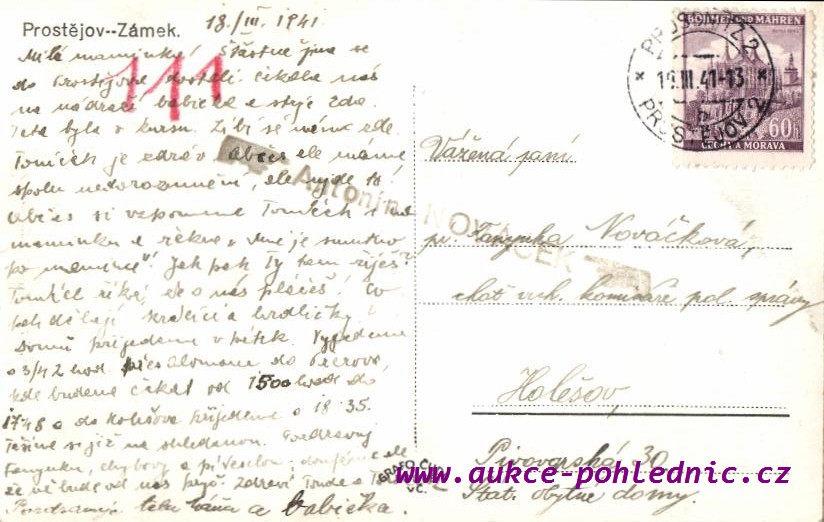 Prostějov--Zámek.
18./III. 1941
Milá maminko! Šťastně jsme se
do Prostějova dostali. Čekala nás
na nádraží babička a
Teta byla v kursu. Líbí se nám zde.
Tomíček je zdráv, občas ale máme
spolu nedorozumění, ale ujde to
občas si vzpomene Tomíček i na
maminku a řekne „mně je smutno
po mamince"! Jak pak Ty tam žiješ?
Tomíček říká, že o nás pláčeš! Co
pak dělají králíci a hrdličky?
Domů přijedeme v pátek. Vyjedeme
o 3/42 hod. přes Olomouc do Přerova,
kde budeme čekat od 1500 hod do
1748 a do Holešova přijedeme o 18 35.
Těšíme se již na shledanou. Pozdravuj
Fanynku, a p. ; doufáme ale
že už bude od nás pryč. Zdraví Tonda a
teta a babička.
111
Antonín NOVÁČEK
BÖHMEN und MÄHREN
60h
ČECHY A MORAVA
PROSSNITZ 2
19.III.41-13
PROSTĚJOV 2
Vážená paní
pí. Fanynka Nováčková,
choť vrch. komisaře pol. správy
Holešov,
Pivovarská 30
Stát. obytné domy.
www.aukce-pohlednic.cz